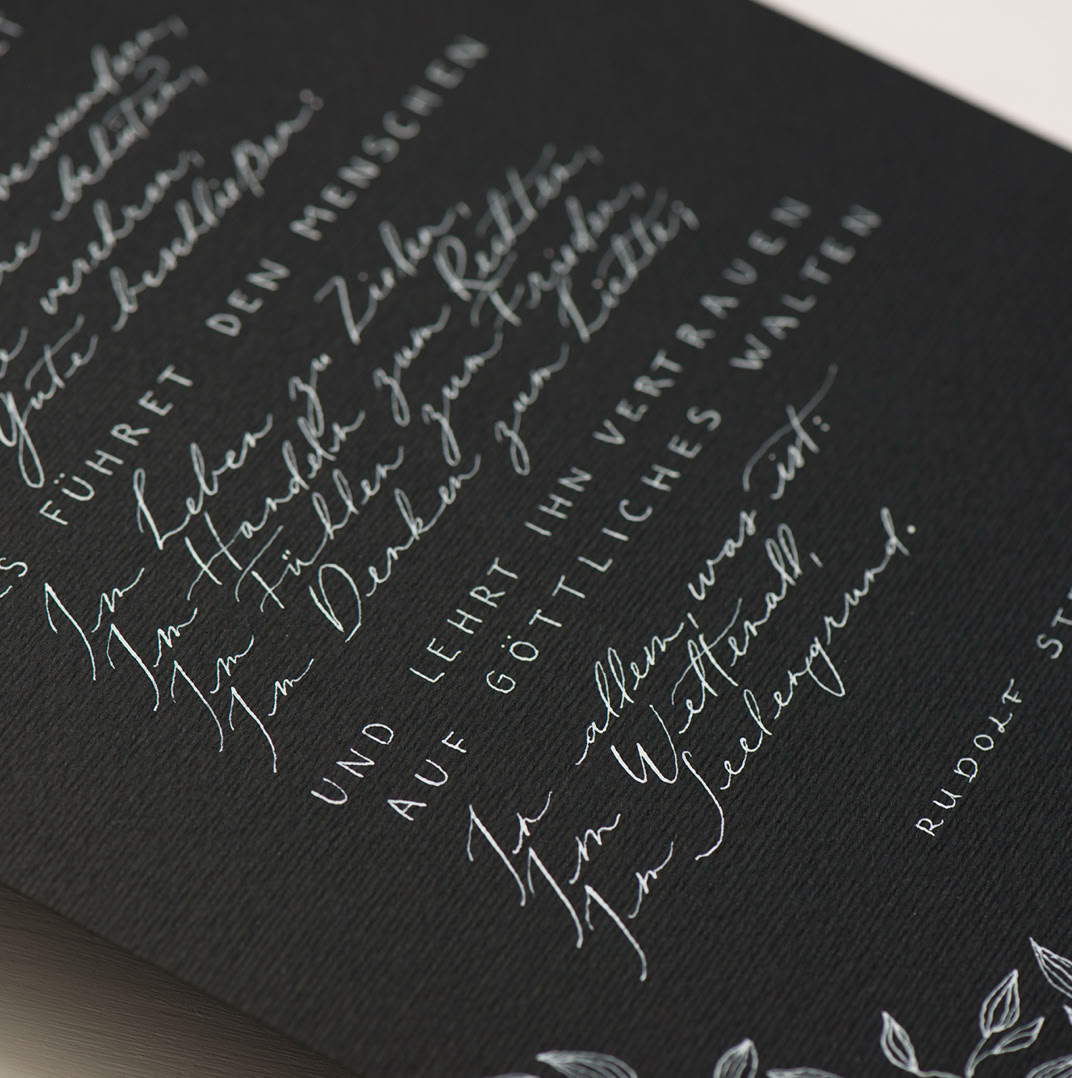 bewundern,
re behüten,
e verehren,
Gute beschließen:
ES FÜHRET DEN MENSCHEN
Im Leben zu Zielen,
Im Handeln zum Rechten,
Im Fühlen zum Frieden,
Im Denken zum Lichte;
UND LEHRT IHN VERTRAUEN
AUF GÖTTLICHES WALTEN
In allem, was ist:
Im Weltenall,
Im Seelengrund.
RUDOLF ST